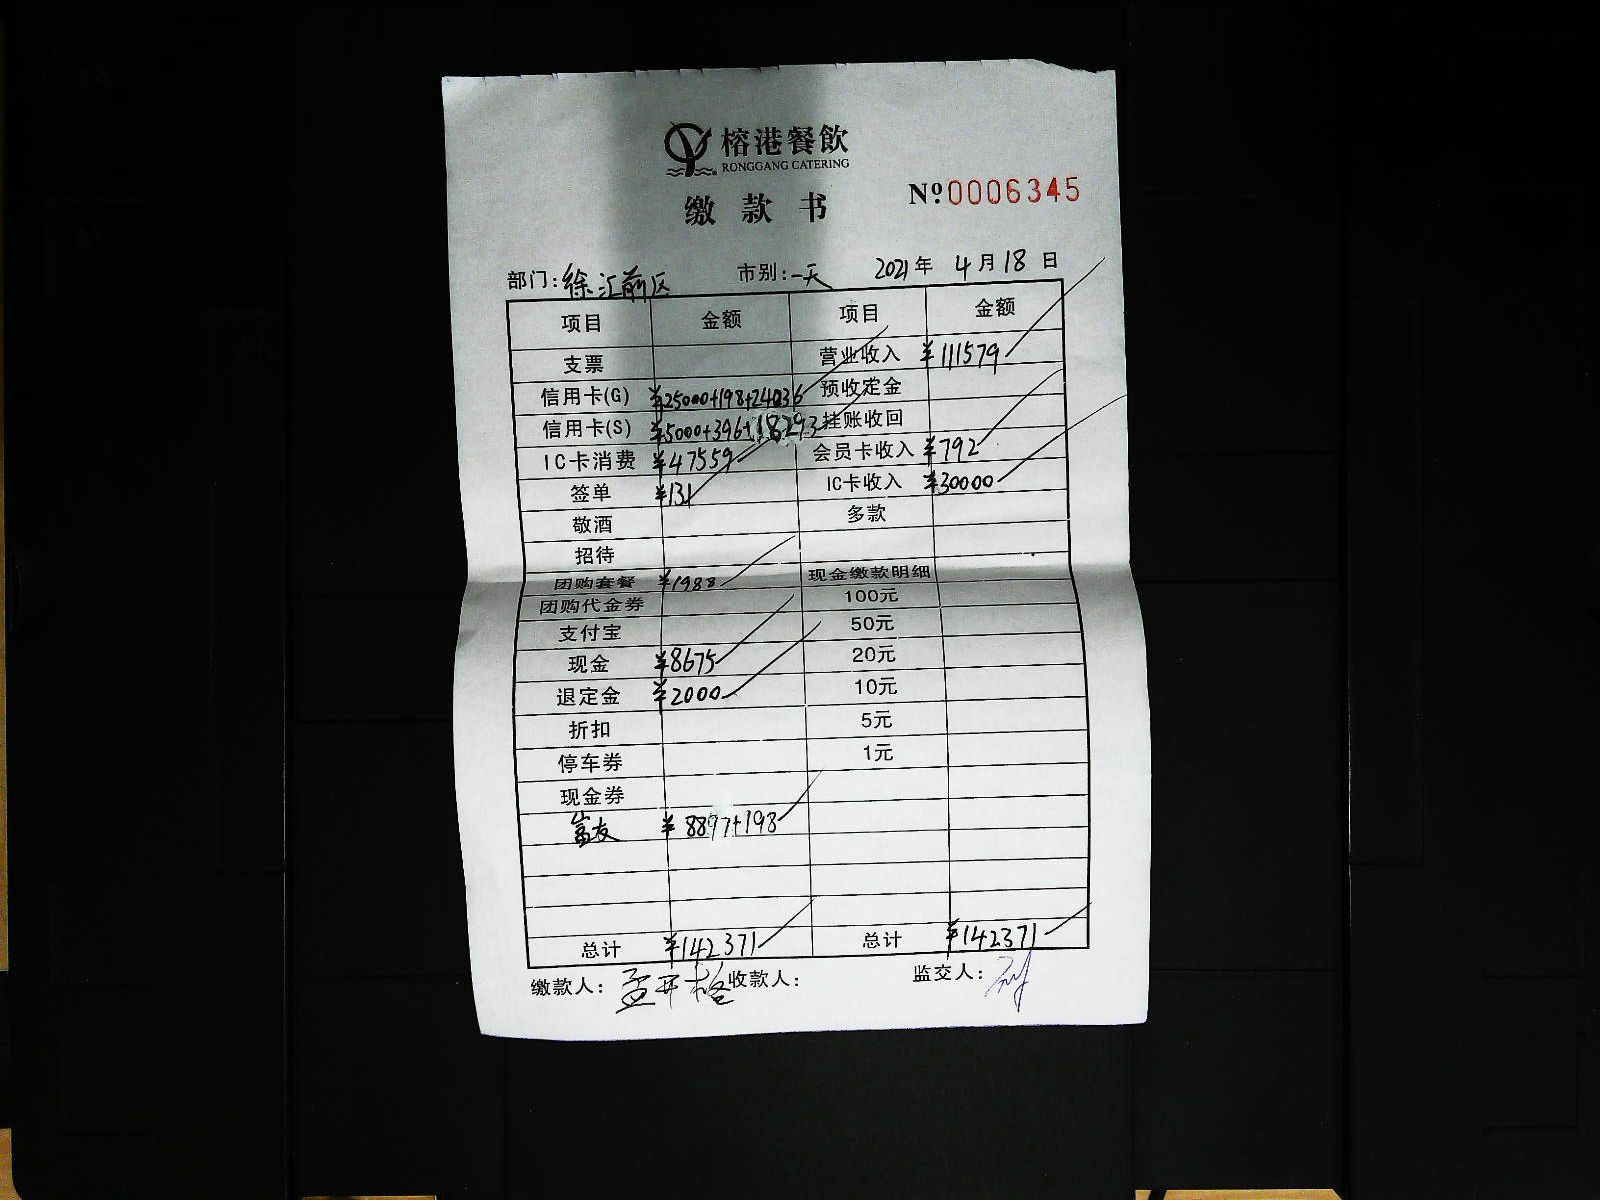 榕港餐飲
RONGGANG CATERING
缴款书
Nº 0006345
部门:徐汇前区 市别:一天 2021年 4月18日
项目 金额 项目 金额
支票 营业收入 ¥111579
信用卡(G) ¥25000+198+24036 预收定金
信用卡(S) ¥5000+396+18293 挂账收回
IC卡消费 ¥47559 会员卡收入 ¥792
签单 ¥131 IC卡收入 ¥30000
敬酒 多款
招待
团购套餐 ¥1988 现金缴款明细
团购代金券 100元
支付宝 50元
现金 ¥8675 20元
退定金 ¥2000 10元
折扣 5元
停车券 1元
现金券
富友 ¥8897+198
总计 ¥142371 总计 ¥142371
缴款人: 孟开格 收款人: 监交人: